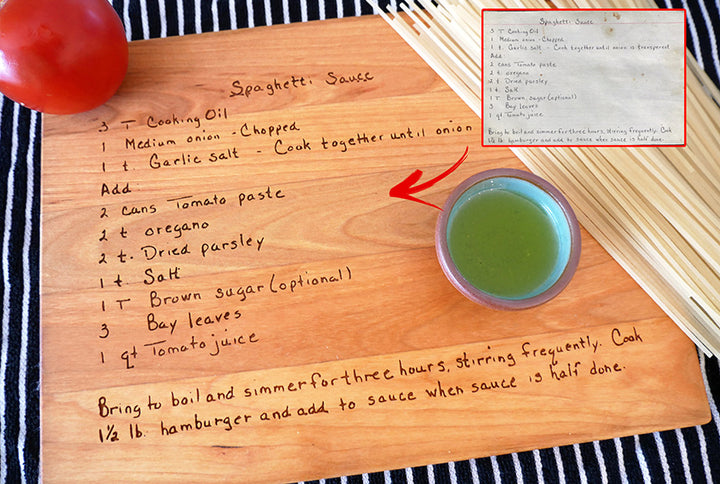 Spaghetti Sauce
3 T Cooking Oil
1 Medium onion - Chopped
1 t. Garlic salt - Cook together until onion
Add
2 cans Tomato paste
2 t oregano
2 t. Dried parsley
1 t. Salt
1 T Brown sugar (optional)
3 Bay leaves
1 qt Tomato juice
Bring to boil and simmer for three hours, stirring frequently. Cook
1½ lb. hamburger and add to sauce when sauce is half done.
Spaghetti Sauce
3 T Cooking Oil
1 Medium onion - Chopped
1 t. Garlic salt - Cook together until onion is transparent
Add
2 cans Tomato paste
2 t. oregano
2 t. Dried parsley
1 t. Salt
1 T. Brown sugar (optional)
3 Bay leaves
1 qt Tomato juice
Bring to boil and simmer for three hours, stirring frequently. Cook
1½ lb. hamburger and add to sauce when sauce is half done.